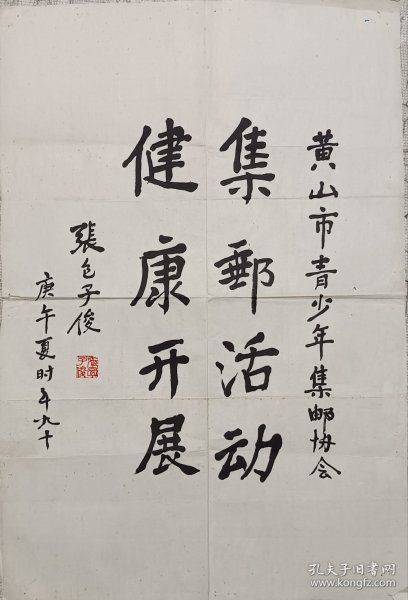 黄山市青少年集邮协会
集郵活动
健康开展
張包子俊
庚午夏时年九十
孔夫子旧书网
www.kongfz.com